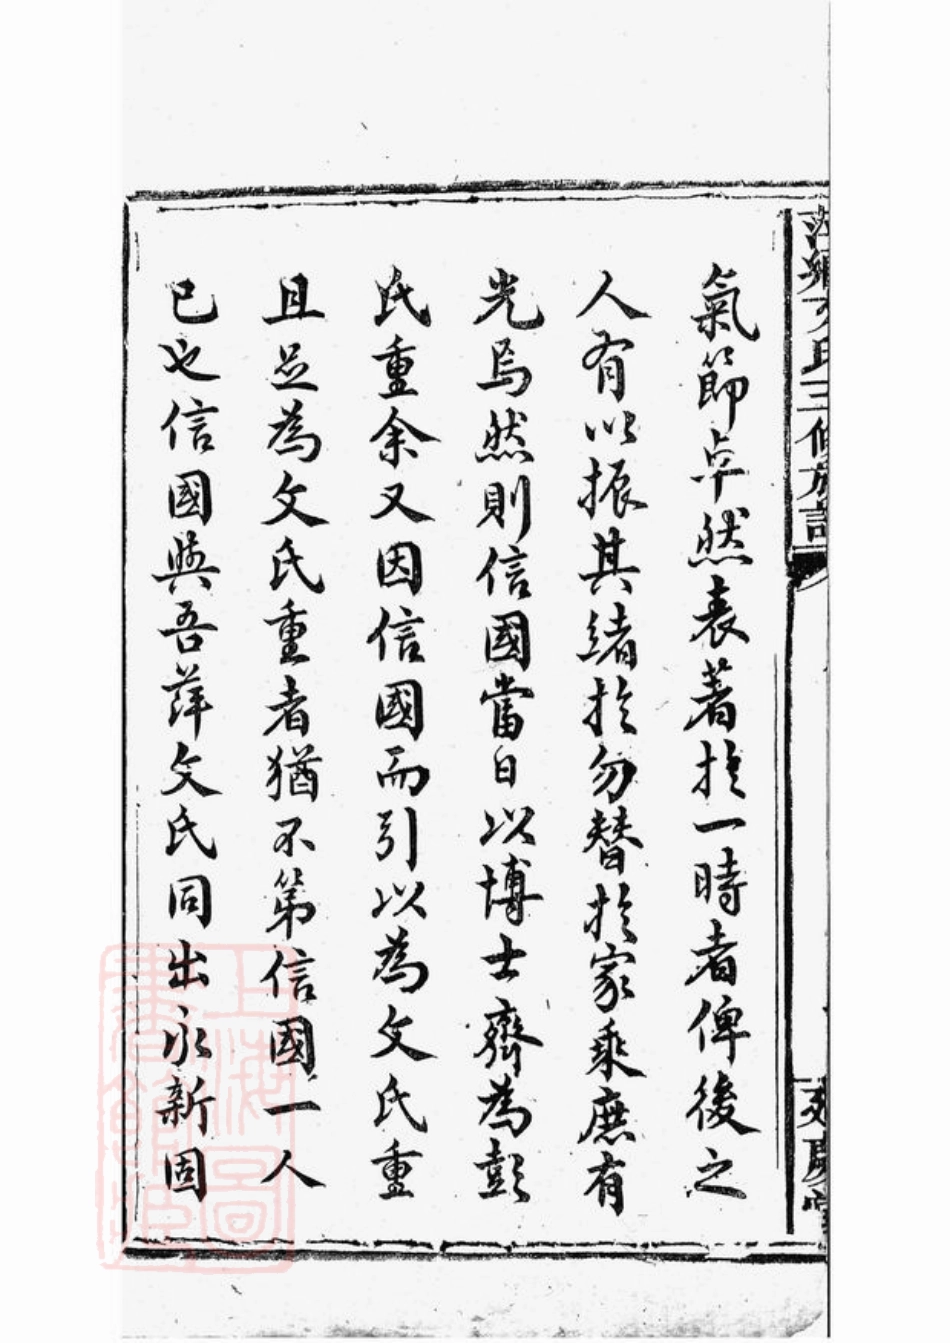 氣節卓然表著於一時者俾後之
人有以振其緒於勿替於家乘庶有
光焉然則信國當日以博士齊為彭
氏重余又因信國而引以為文氏重
且足為文氏重者猶不第信國一人
已也信國與吾萍文氏同出永新固
萍鄉文氏三修族譜
慶堂
上海圖書館藏